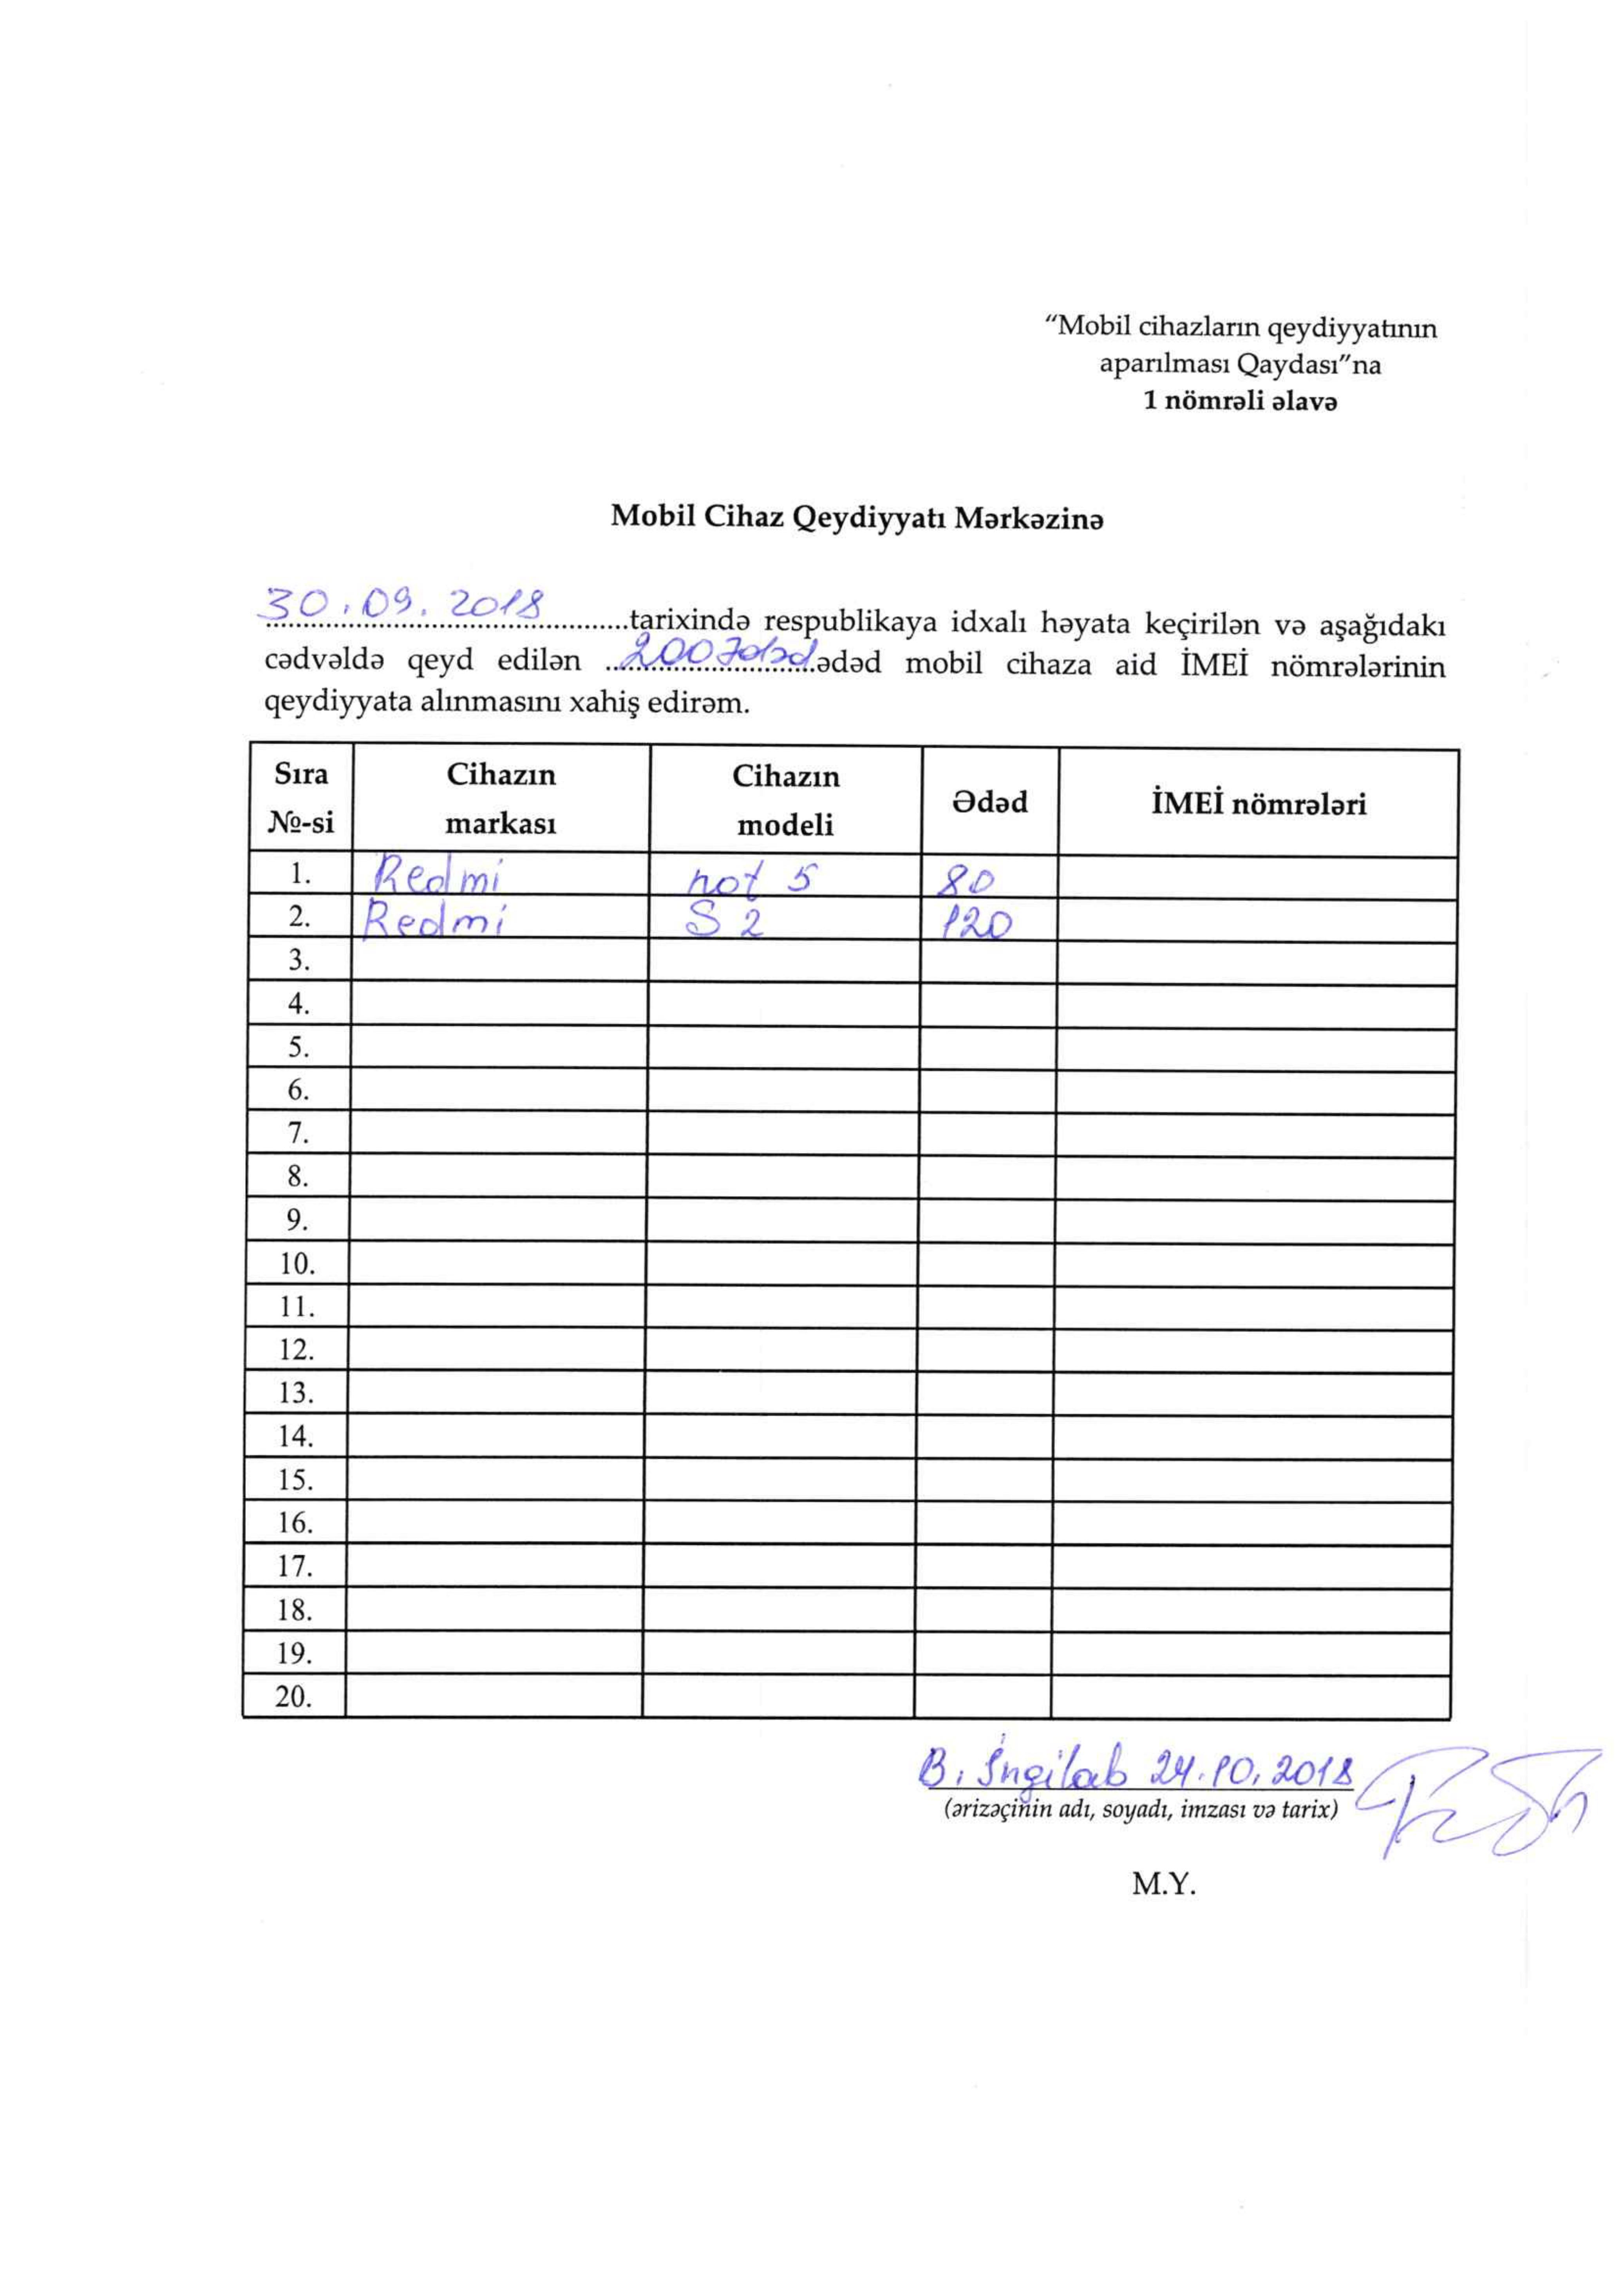 “Mobil cihazların qeydiyyatının
aparılması Qaydası”na
1 nömrəli əlavə
Mobil Cihaz Qeydiyyatı Mərkəzinə
30.09.2018 tarixində respublikaya idxalı həyata keçirilən və aşağıdakı
cədvəldə qeyd edilən 200 ədəd ədəd mobil cihaza aid İMEİ nömrələrinin
qeydiyyata alınmasını xahiş edirəm.
Sıra №-si Cihazın markası Cihazın modeli Ədəd İMEİ nömrələri
1. Redmi not 5 80
2. Redmi S2 120
3.
4.
5.
6.
7.
8.
9.
10.
11.
12.
13.
14.
15.
16.
17.
18.
19.
20.
B. İngilab 24.10.2018
(ərizəçinin adı, soyadı, imzası və tarix)
M.Y.